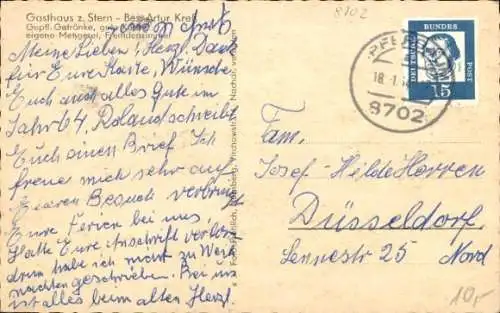 8702
Gasthaus z. Stern - Bes. Artur Kreß
Gepfl. Getränke, gute
eigene Metzgerei, Fremdenzimmer
Meine Lieben! Herzl. Dank
für Eure Karte, Wünsche
Euch auch alles Gute im
Jahr 64, Roland schreibt
Euch einen Brief. Ich
freue mich sehr auf
Eueren Besuch verbringt
Eure Ferien bei uns
Hatte Eure Anschrift verloren
drum habe ich nicht zu Weih
nachten geschrieben. Bei uns
ist alles beim alten Herzl.
DEUTSCHE
BUNDES
POST
15
18.-1.
8702
Fam.
Josef - Hilde Horren
Düsseldorf
Sennestr 25 Nord
10,-